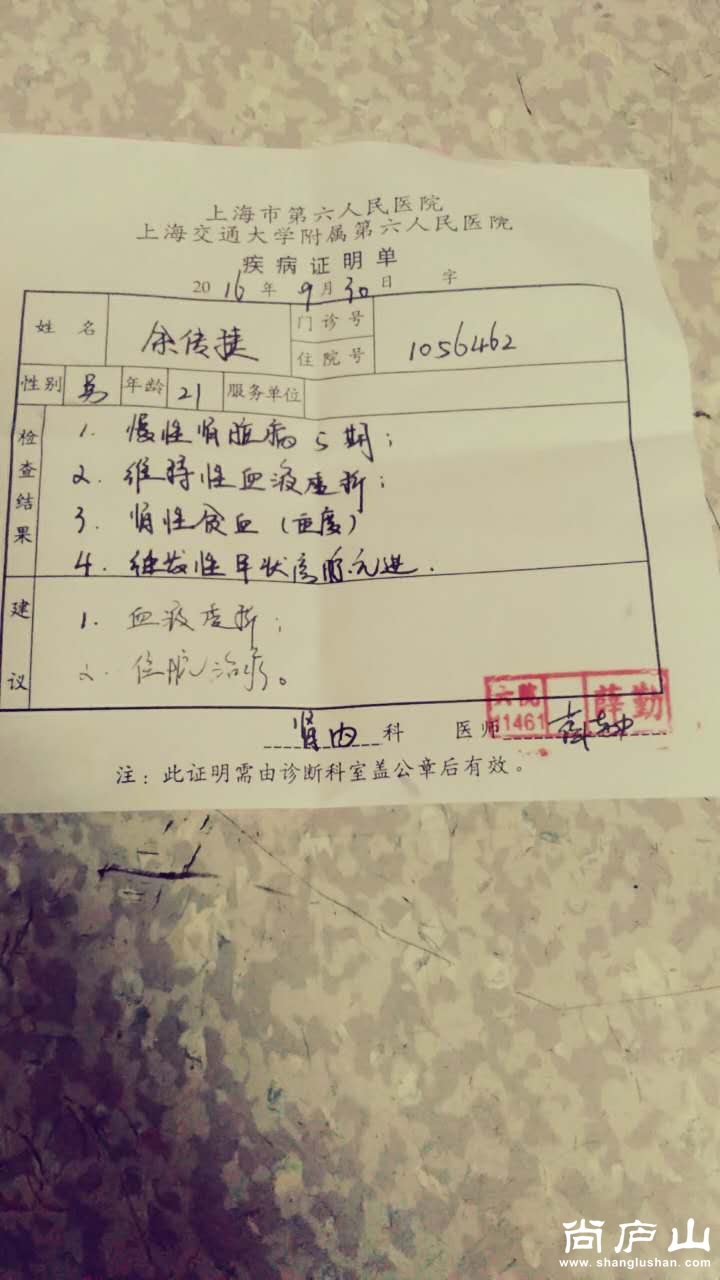 上海市第六人民医院
上海交通大学附属第六人民医院
疾病证明单
2016年9月30日 字
姓名 余传捷 门诊号
住院号 1056462
性别 男 年龄 21 服务单位
检查结果
1. 慢性肾脏病5期;
2. 维持性血液透析;
3. 肾性贫血(重度)
4. 继发性甲状旁腺亢进.
建议
1. 血液透析;
2. 住院治疗。
六院 11461 薛勤
肾内科 医师
注:此证明需由诊断科室盖公章后有效。
尚庐山
www.shanglushan.com